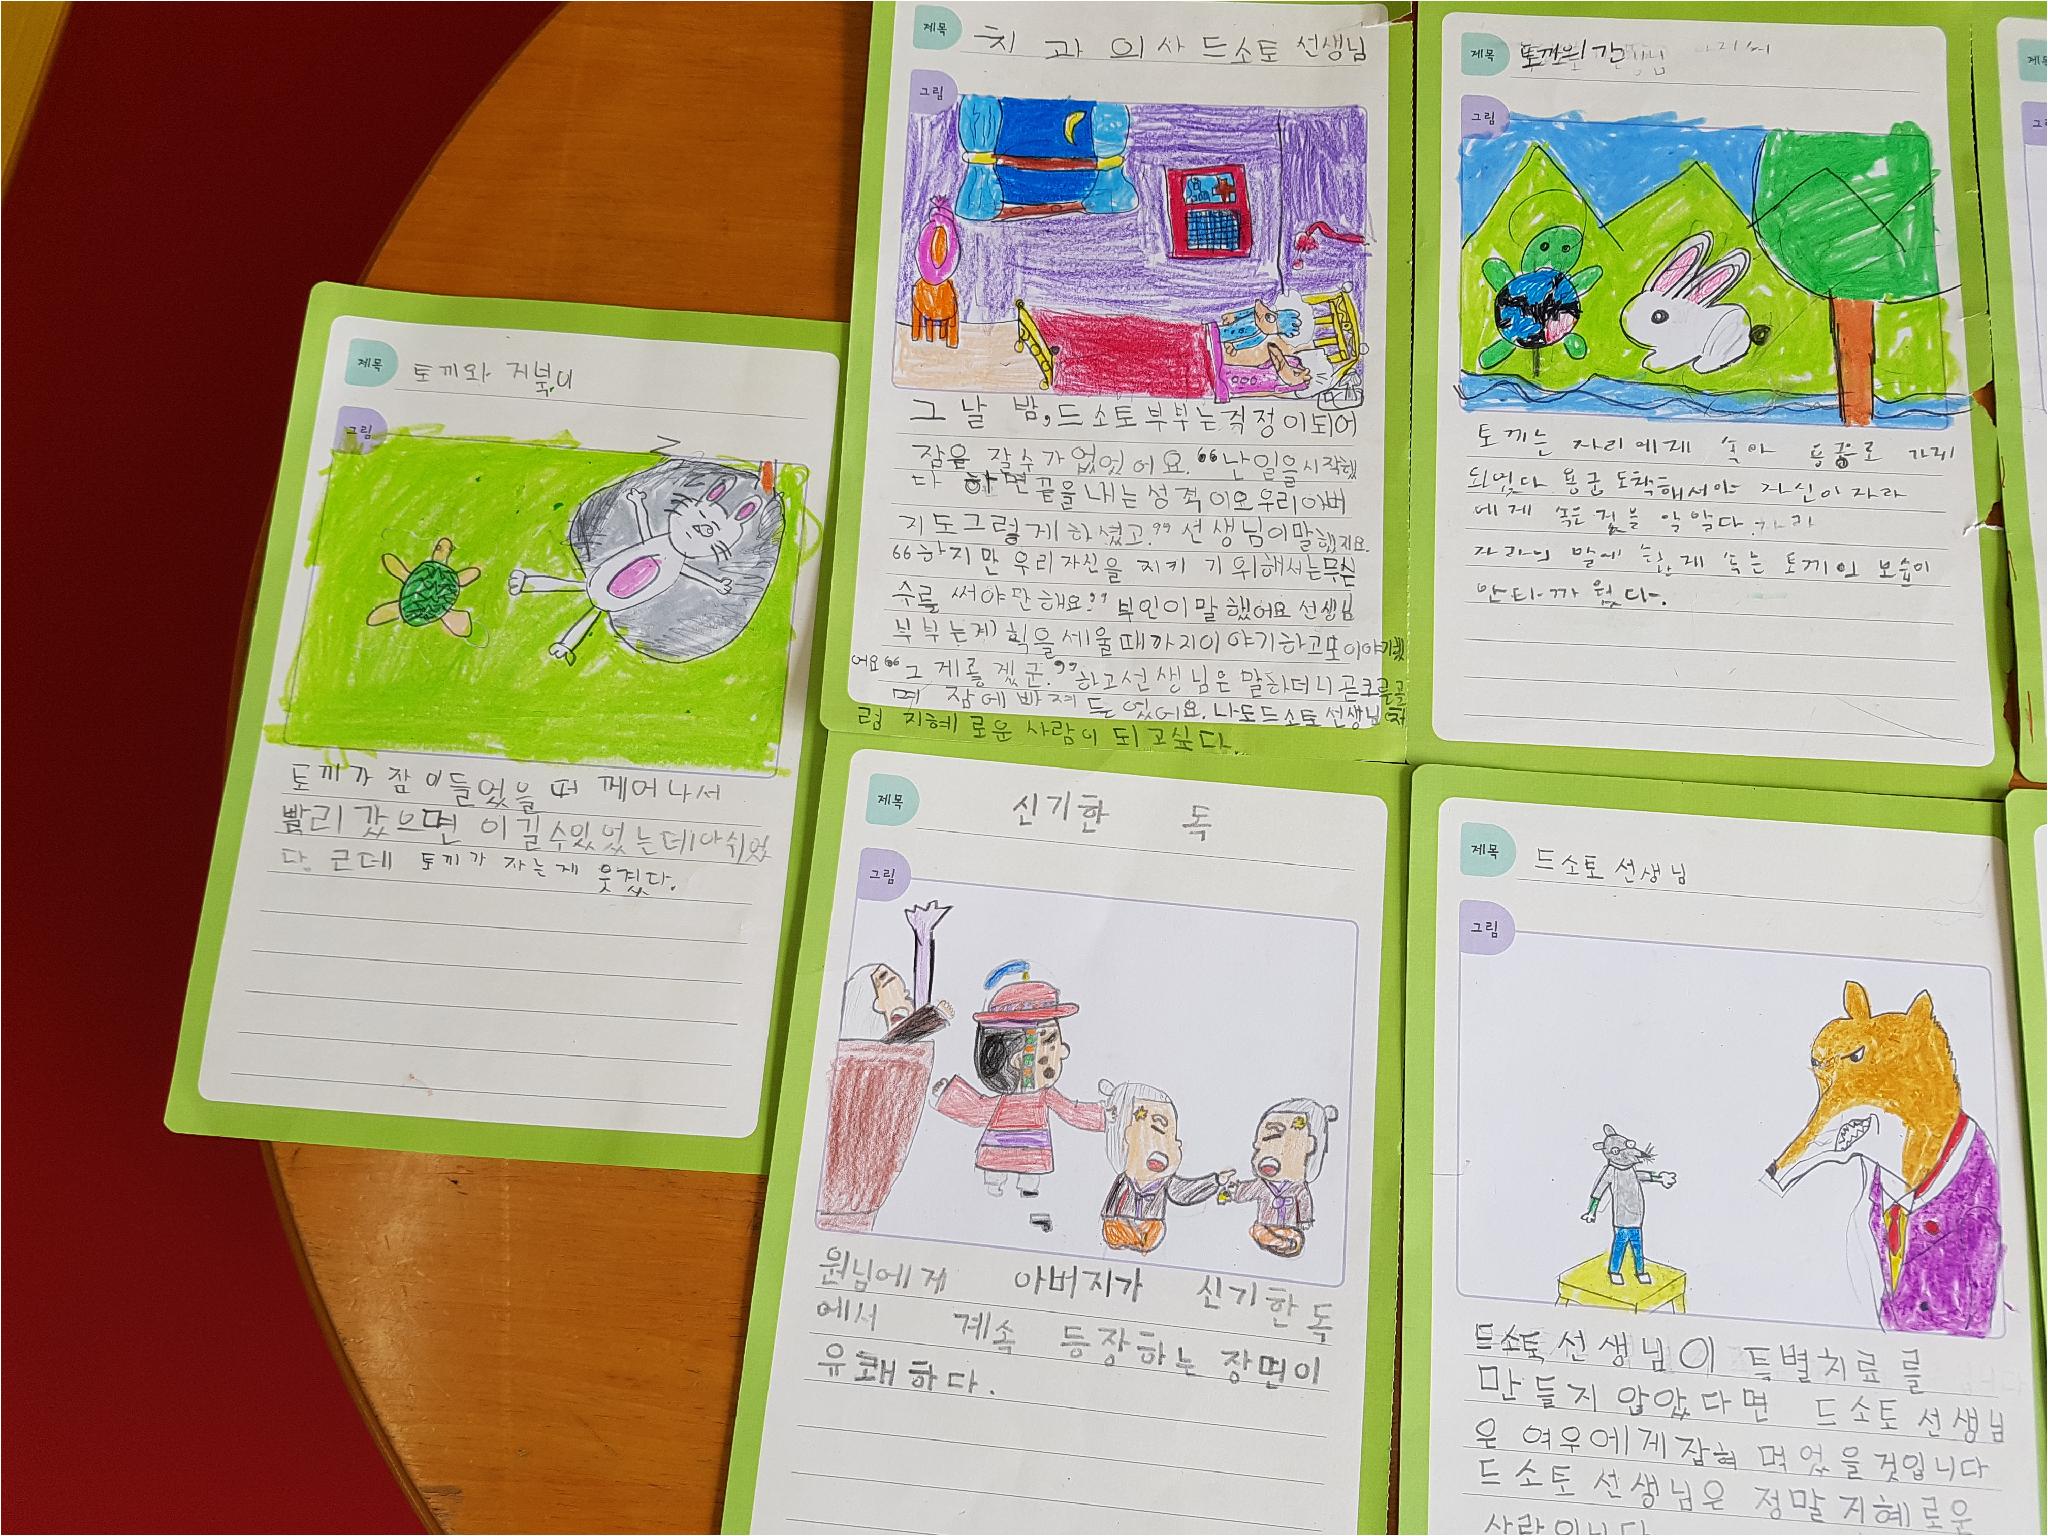 제목 토끼와 거북이
그림
토끼가 잠이 들었을 때 께어나서
빨리 갔으면 이길수있었는데 아쉬웠
다. 근데 토끼가 자는게 웃겼다.
제목 치과의사 드소토 선생님
그림
그 날 밤, 드소토부부는 걱정이되어
잠을 잘수가없었어요. "난 일을시작했
다 하면끝을내는 성격이요우리아버
지도그렇게하셨고." 선생님이말했지요.
"하지만 우리자신을 지키기위해서는무슨
수를 써야만해요." 부인이말했어요 선생님
부부는계획을세울때까지이야기하고또이야기했
어요 "그게좋겠군." 하고선생님은 말하더니 곧크루골
며 잠에빠져들었어요. 나도드소토선생님처
럼 지혜로운사람이 되고싶다.
제목 토끼의 간
그림
토끼는 자라에게 속아 용궁로 가게
되었다. 용궁 도착해서야 자신이 자라
에게 속은 것을 알았다.
자라의 말에 속는 토끼의 모습이
안타까웠다.
제목 신기한 독
그림
원님에게 아버지가 신기한독
에서 계속 등장하는 장면이
유쾌하다.
제목 드소토 선생님
그림
드소토 선생님이 특별치료를
만들지 않았다면 드소토선생님
은 여우에게잡혀 먹었을것입니다
드소토 선생님은 정말지혜로운
사람입니다
제목
그림